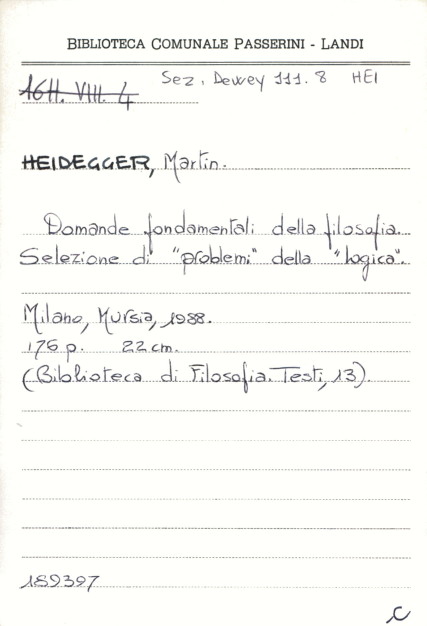 BIBLIOTECA COMUNALE PASSERINI - LANDI
Sez. Dewey 111.8 HEI
16H. VIII. 4
HEIDEGGER, Martin.
Domande fondamentali della filosofia.
Selezione di "problemi" della "logica".
Milano, Mursia, 1988.
176 p. 22 cm.
(Biblioteca di Filosofia. Testi, 13).
189397
C